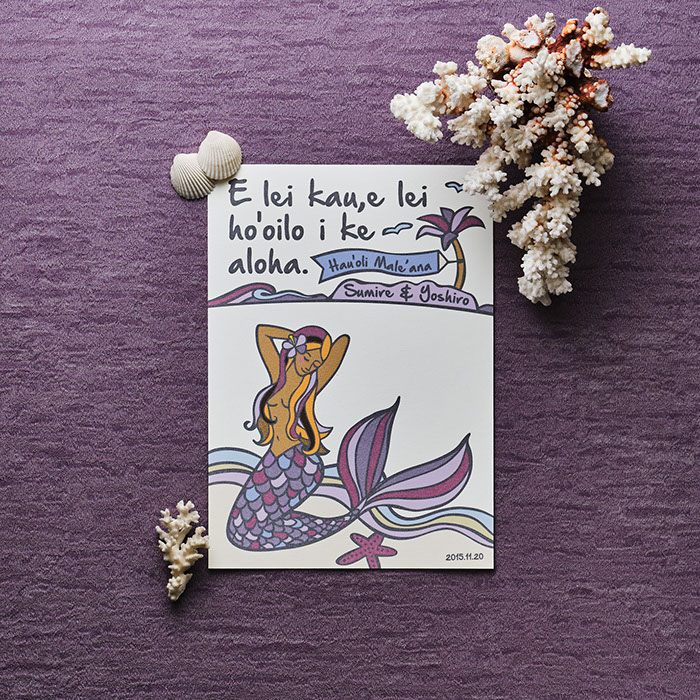 E lei kau,e lei
ho'oilo i ke
aloha.
Hau'oli Male'ana
Sumire & Yoshiro
2015.11.20